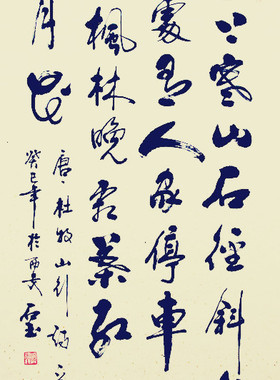 上寒山石徑斜
處有人家停車
楓林晚霜葉紅
月花
唐、杜牧山行
癸巳年於西安